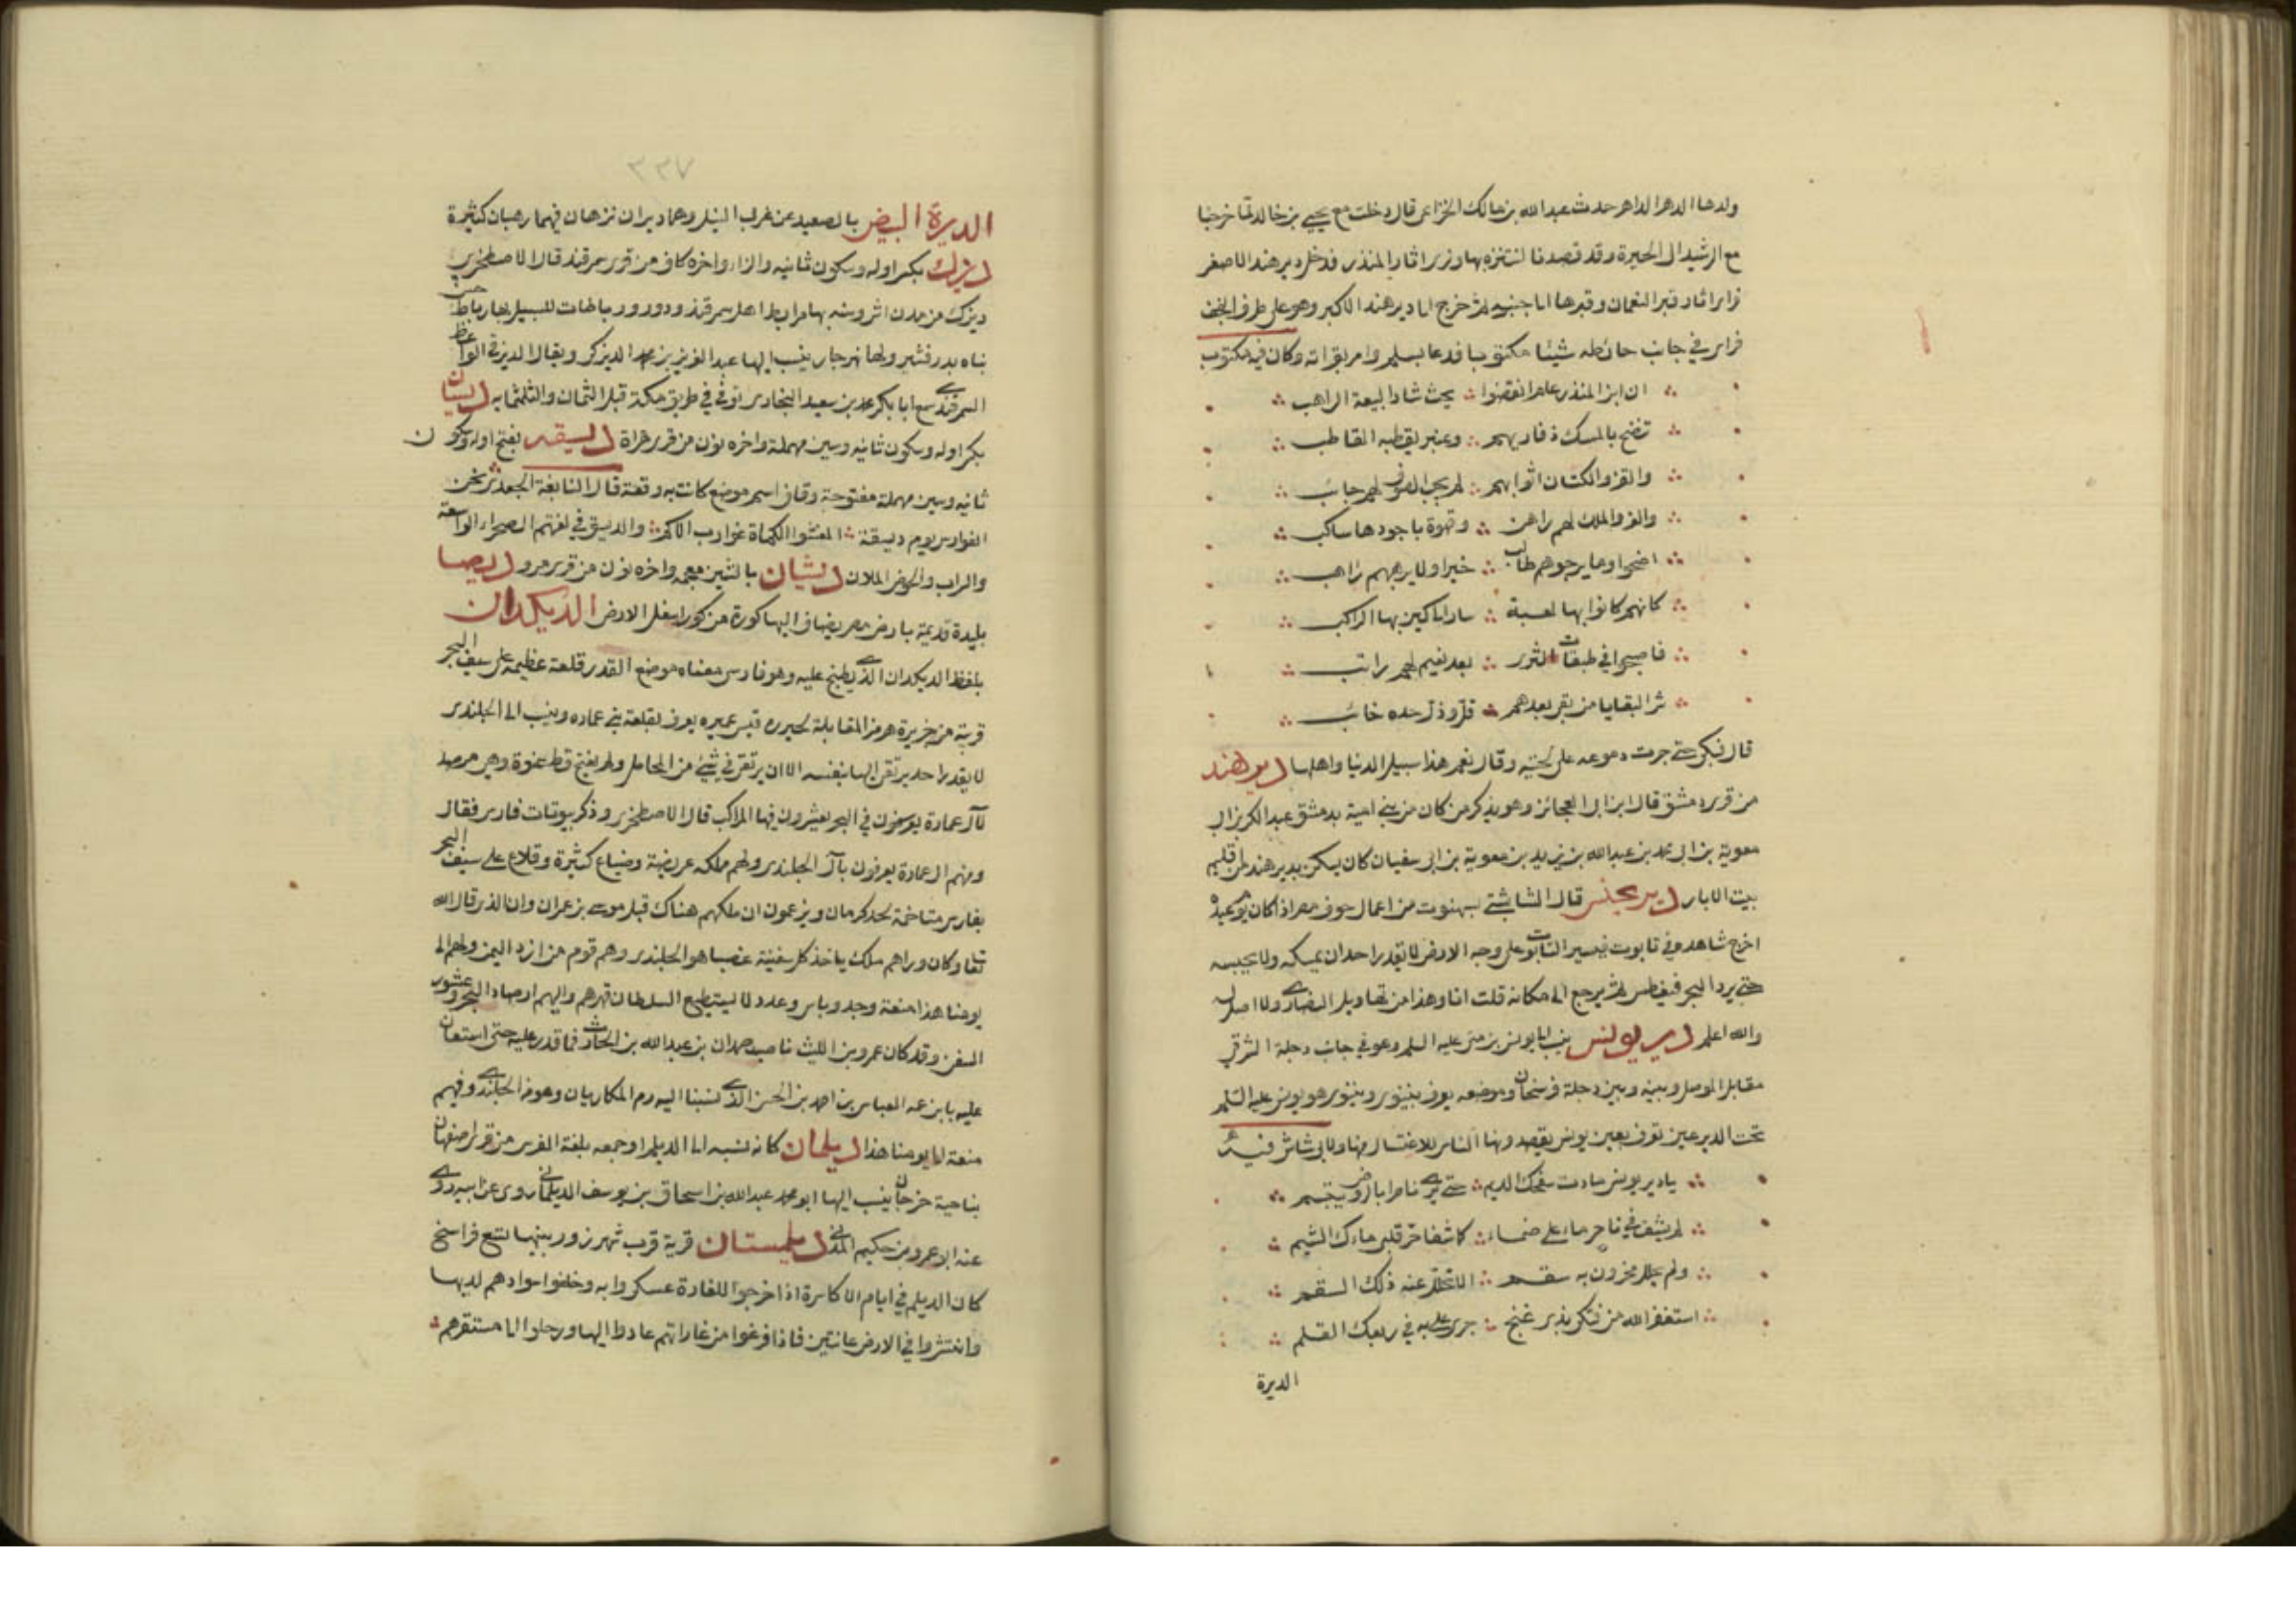 ولدها الدهر الداهر حدث عبد الله بن مالك الخزاعي قال دخلت مع يحيى بن خالد لما خرجنا
مع الرشيد الى الحيرة وقد قصدنا لنتنزه بها ونرى اثار المنذر فدخل دير هند الاصغر
فراى اثار قبر النعمان وقبرها الى جنبه ثم خرج الى دير هند الاكبر وهو على طرف النجف
فراى في جانب حائطه شيئا مكتوبا فدعا بسلم وامر بقراته وكان فيه مكتوب
ان ابن المنذر عام انقضوا ∴ بحيث شاد البيعة الراهب
تنضح بالمسك ذفاريهم ∴ وعنبر يقطبه القاطب
والقز والكتان اثوابهم ∴ لم يجب الصوف لهم جائب
والعز والملك لهم راهن ∴ وقهوة ناجودها ساكب
اضحوا وما يرجوهم طالب ∴ خيرا ولا يرهبهم راهب
كانهم كانوا بها لعبة ∴ سار الى اين بها الراكب
فاصبحوا في طبقات الثرى ∴ بعد نعيم لهم راتب
شر البقايا من بقي بعدهم ∴ قل وذل جده خائب
قال فبكى حتى جرت دموعه على لحيته وقال نعم هذا سبيل الدنيا واهلها دير هند
من قرى دمشق قال ابن ابي العجائز وهو يذكر من كان من بني امية بدمشق عبد الكريم بن ابي
معوية بن ابي محمد بن عبد الله بن يزيد بن معوية بن ابي سفيان كان يسكن بدير هند من اقليم
بيت الابار دير يحنس قال الشابشتي بسمنوت من اعمال حوف مصر اذا كان يوم عيده
اخرج شاهده في تابوت فيسير التابوت على وجه الارض لا يقدر احد ان يمسكه ولا يحبسه
حتى يرد البحر فيغطس ثم يرجع الى مكانه قلت انا وهذا من تهاويل النصارى ولا اصل له
والله اعلم دير يونس ينسب الى يونس بن متى عليه السلم وهو في جانب دجلة الشرقي
مقابل الموصل وبينه وبين دجلة فرسخان وموضعه يعرف بنينوى ونينوى هو يونس عليه السلم
تحت الدير عين تعرف بعين يونس يقصدونها الناس للاغتسال منها ولابي شاش فيه
يا دير يونس جادت سفحك الديم ∴ حتى يرى ناضرا بالروض يبتسم
لم يشف في ناجر ماء على ظماء ∴ كما شفا حر قلبي ماءك الشبم
ولم يحلل محزون به سقم ∴ الا تحلل عنه ذلك السقم
استغفر الله من فتك بذي غنج ∴ جرى علي به في ربعك القلم
الديرة
٣٣٧
الديرة البيض بالصعيد عن غرب النيل وهما ديران نزهان فيهما رهبان كثيرة
ديزك بكسر اوله وسكون ثانيه والزا واخره كاف من قرى سمرقند قال الاصطخري
ديزك من مدن اشروسنه بها مرابط اهل سمرقند ودور ورباطات للسبيل بها رباط حسن
بناه بدر قشير ولها نهر جار ينسب اليها عبد العزيز بن محمد الديزكي ويقال الديزقي الواعظ
السمرقندي سمع ابا بكر محمد بن سعيد البخاري توفي في طريق مكة قبل الثمان والثلثمايه ديسان
بكسر اوله وسكون ثانيه وسين مهملة واخره نون من قرى هراة ديسقه بفتح اوله وسكون
ثانيه وسين مهملة مفتوحة وقاف اسم موضع كانت به وقعة قال النابغة الجعدي نحن
الفوارس يوم ديسقة ∴ المغشوا الكماة غوارب الاكم ∴ والديسق في لغتهم الصحراء الواسعة
والسراب والحوض الملان ديشان بالشين معجمه واخره نون من قرى مرو ديصا
بليدة قديمة بارض مصر يضاف اليها كورة من كور اسفل الارض الديكدان
بلفظ الديكدان الذي يطبخ عليه وهو فارسي معناه موضع القدر قلعة عظيمة على سيف البحر
قريبة من جزيرة هرمز المقابلة لجزيرة قيس عميره يعرف بقلعة بني عماره وينسب الى الجلندى
لا يقدر احد يرتقي اليها بنفسه الا ان يرتقي في شيئ من المحامل ولم يفتح قط عنوة وهي مرصد
لآل عمارة يوضون في البحر يعشرون فيها المراكب قال الاصطخري وذكر بيوتات فارس فقال
ومنهم ال عمارة يعرفون بآل الجلندى ولهم مملكه عريضة وضياع كثيرة وقلاع على سيف البحر
بفارس متاخمة لحد كرمان ويزعمون ان ملكهم هناك قبل موسى بن عمران وان الذي قال الله
تعا وكان وراهم ملك ياخذ كل سفينة غصبا هو الجلندى وهم قوم من ازد اليمن ولهم الى
يومنا هذا منعة وجد وباس وعدد لا يستطيع السلطان قهرهم واليهم ارصاد البحر وعشور
السفن وقد كان عمرو بن الليث ناصب حمدان بن عبد الله بن الحارث فما قدر عليه حتى استعان
عليه بابن عمه العباس بن احمد بن الحسن الذي نسبنا اليه رم الكاريان وهو من الجلندى وفيهم
منعة الى يومنا هذا ديلمان كانه نسبه الى الديلم او جمعه بلغة الفرس من قرى اصفهان
بناحية خرجان ينسب اليها ابو محمد عبد الله بن اسحاق بن يوسف الديلماني روى عن ابيه روى
عنه ابو عمرو بن حكيم المدني ديلمستان قرية قرب شهرزور بينهما تسع فراسخ
كان الديلم في ايام الاكاسرة اذا خرجوا للغارة عسكروا به وخلفوا سوادهم لديها
وانتشروا في الارض عائثين فاذا فرغوا من غاراتهم عادوا اليها ورحلوا الى مستقرهم